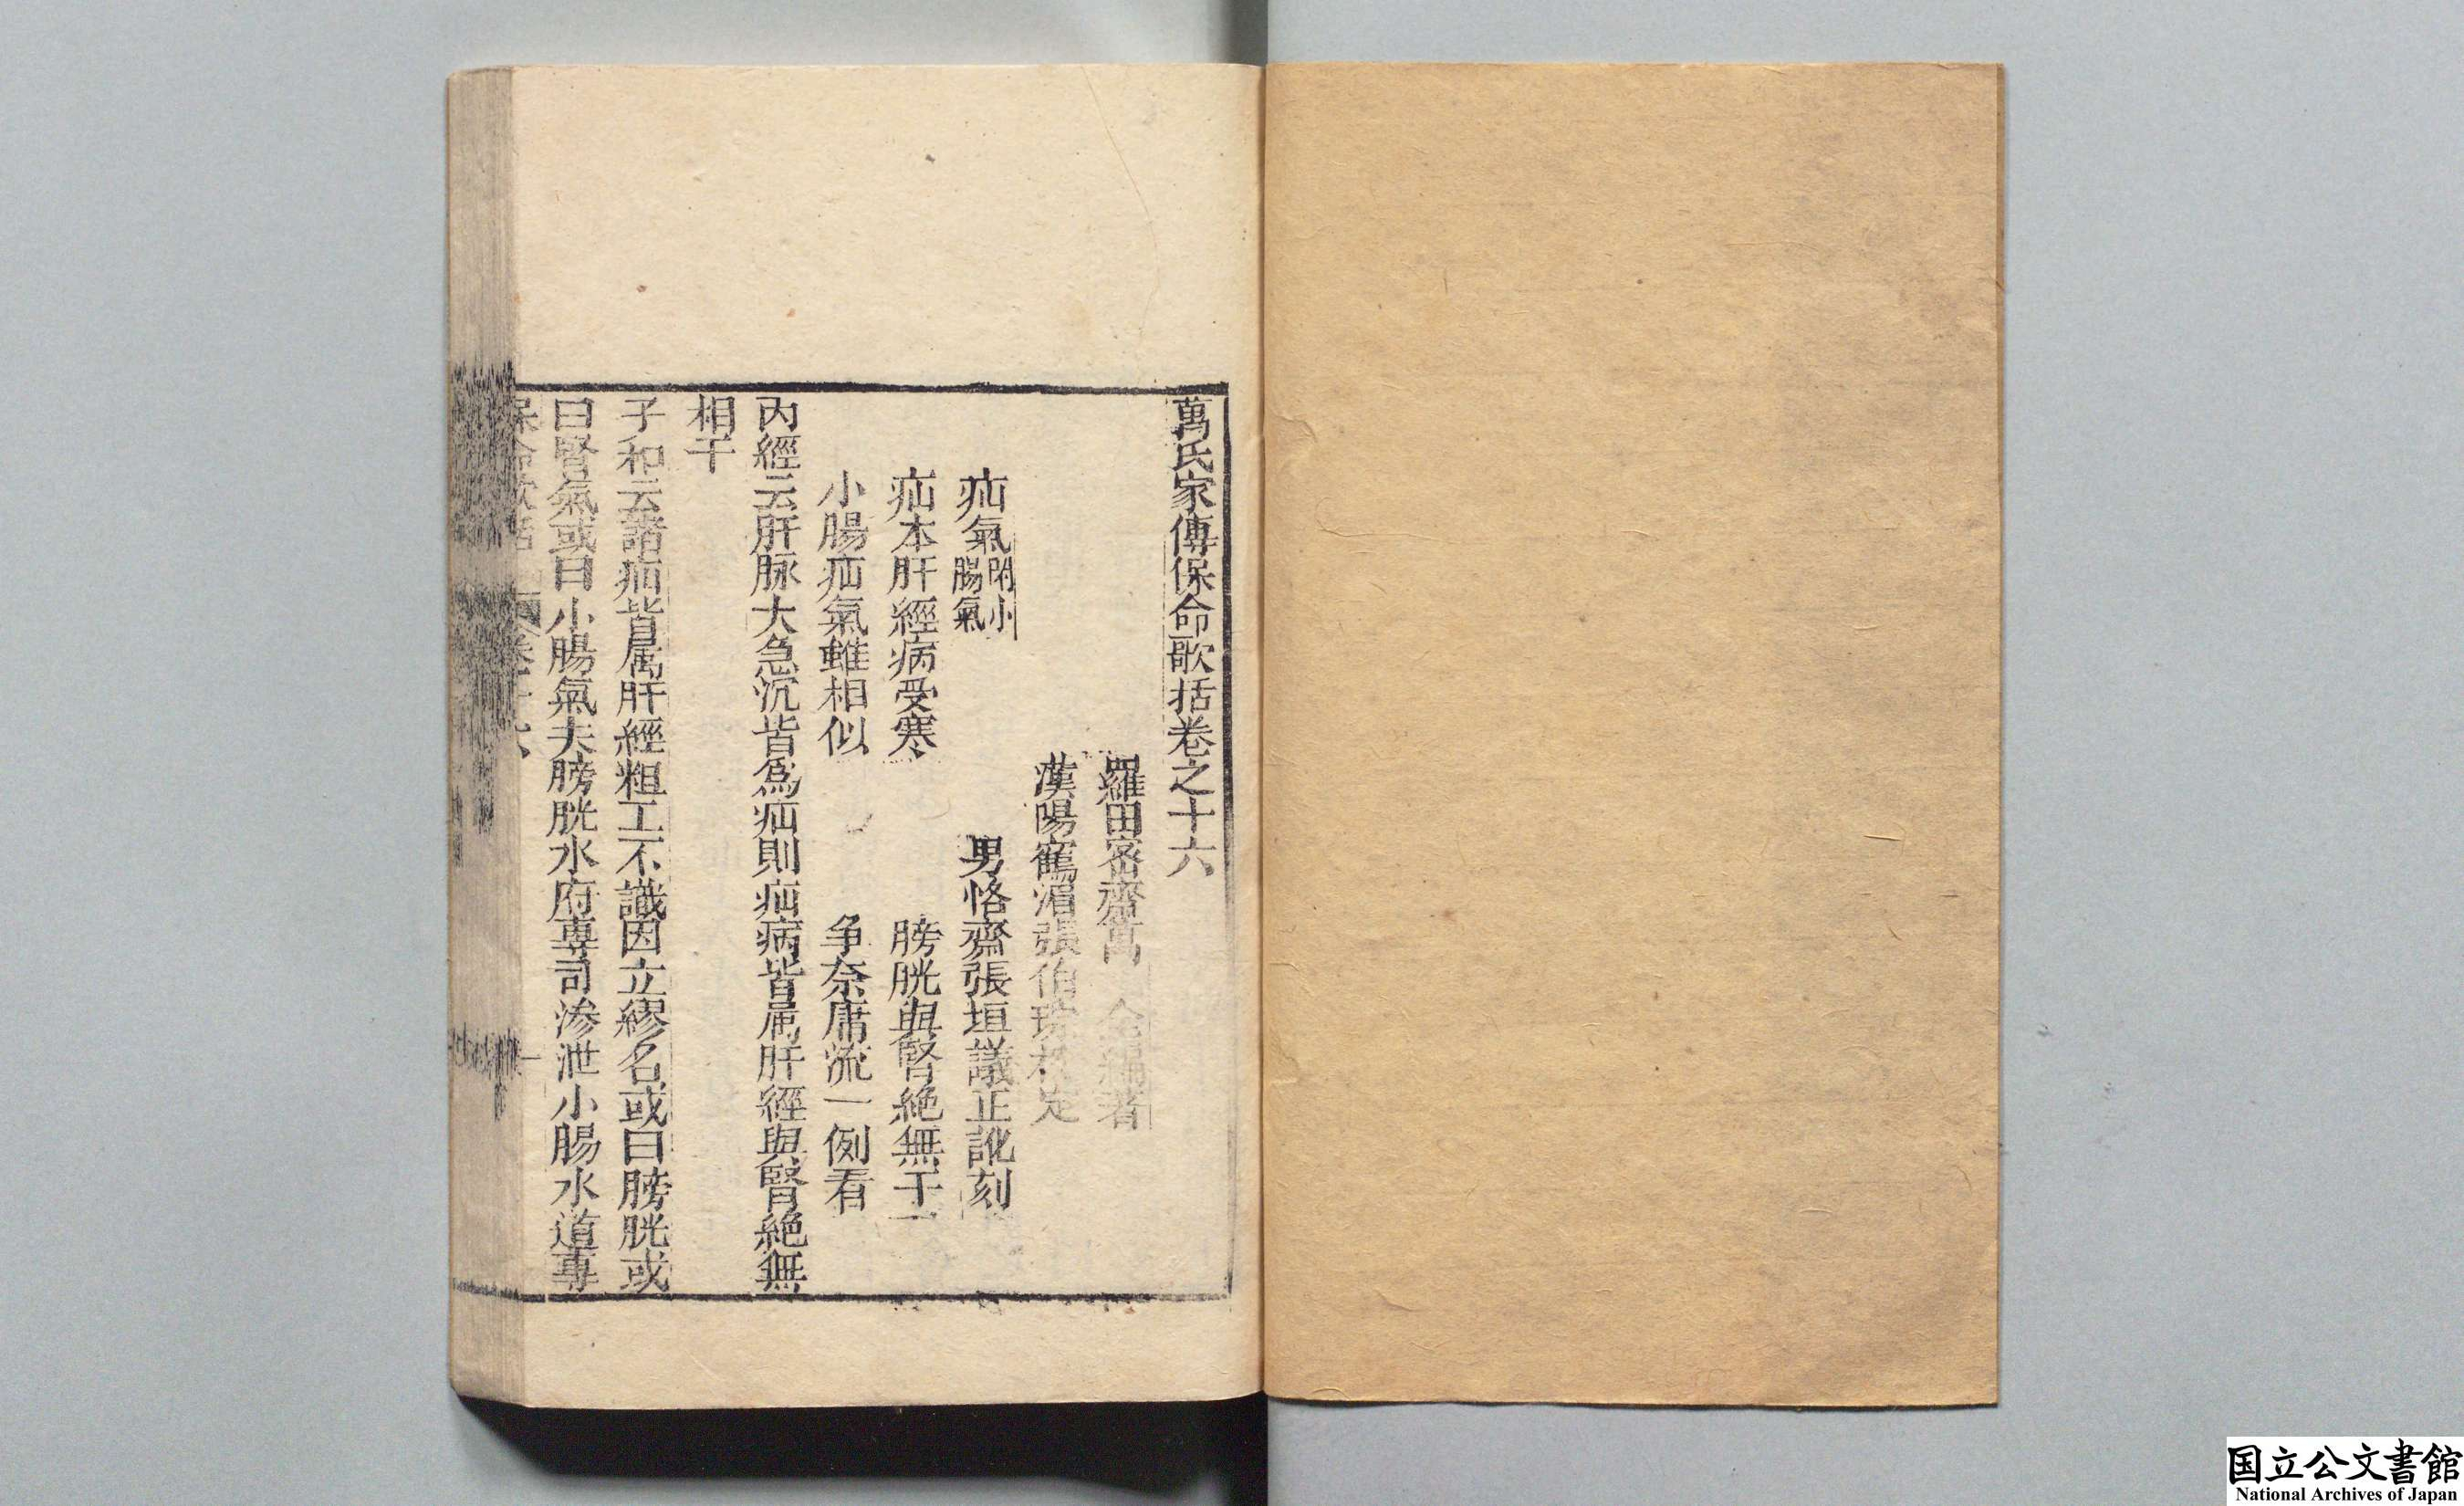 萬氏家傳保命歌括卷之十六
羅田密齋萬 全編著
漢陽鶴湄張伯琮校定
疝氣附小腸氣 男恪齋張垣議正訛刻
疝本肝經病受寒 膀胱與腎絶無干
小腸疝氣雖相似 争奈庸流一例看
內經云肝脉大急沉皆爲疝則疝病皆属肝經與腎絶無
相干
子和云諸疝皆属肝經粗工不識因立繆名或曰膀胱或
曰腎氣或曰小腸氣夫膀胱水府專司滲泄小腸水道專
保命歌括 卷十六
国立公文書館
National Archives of Japan